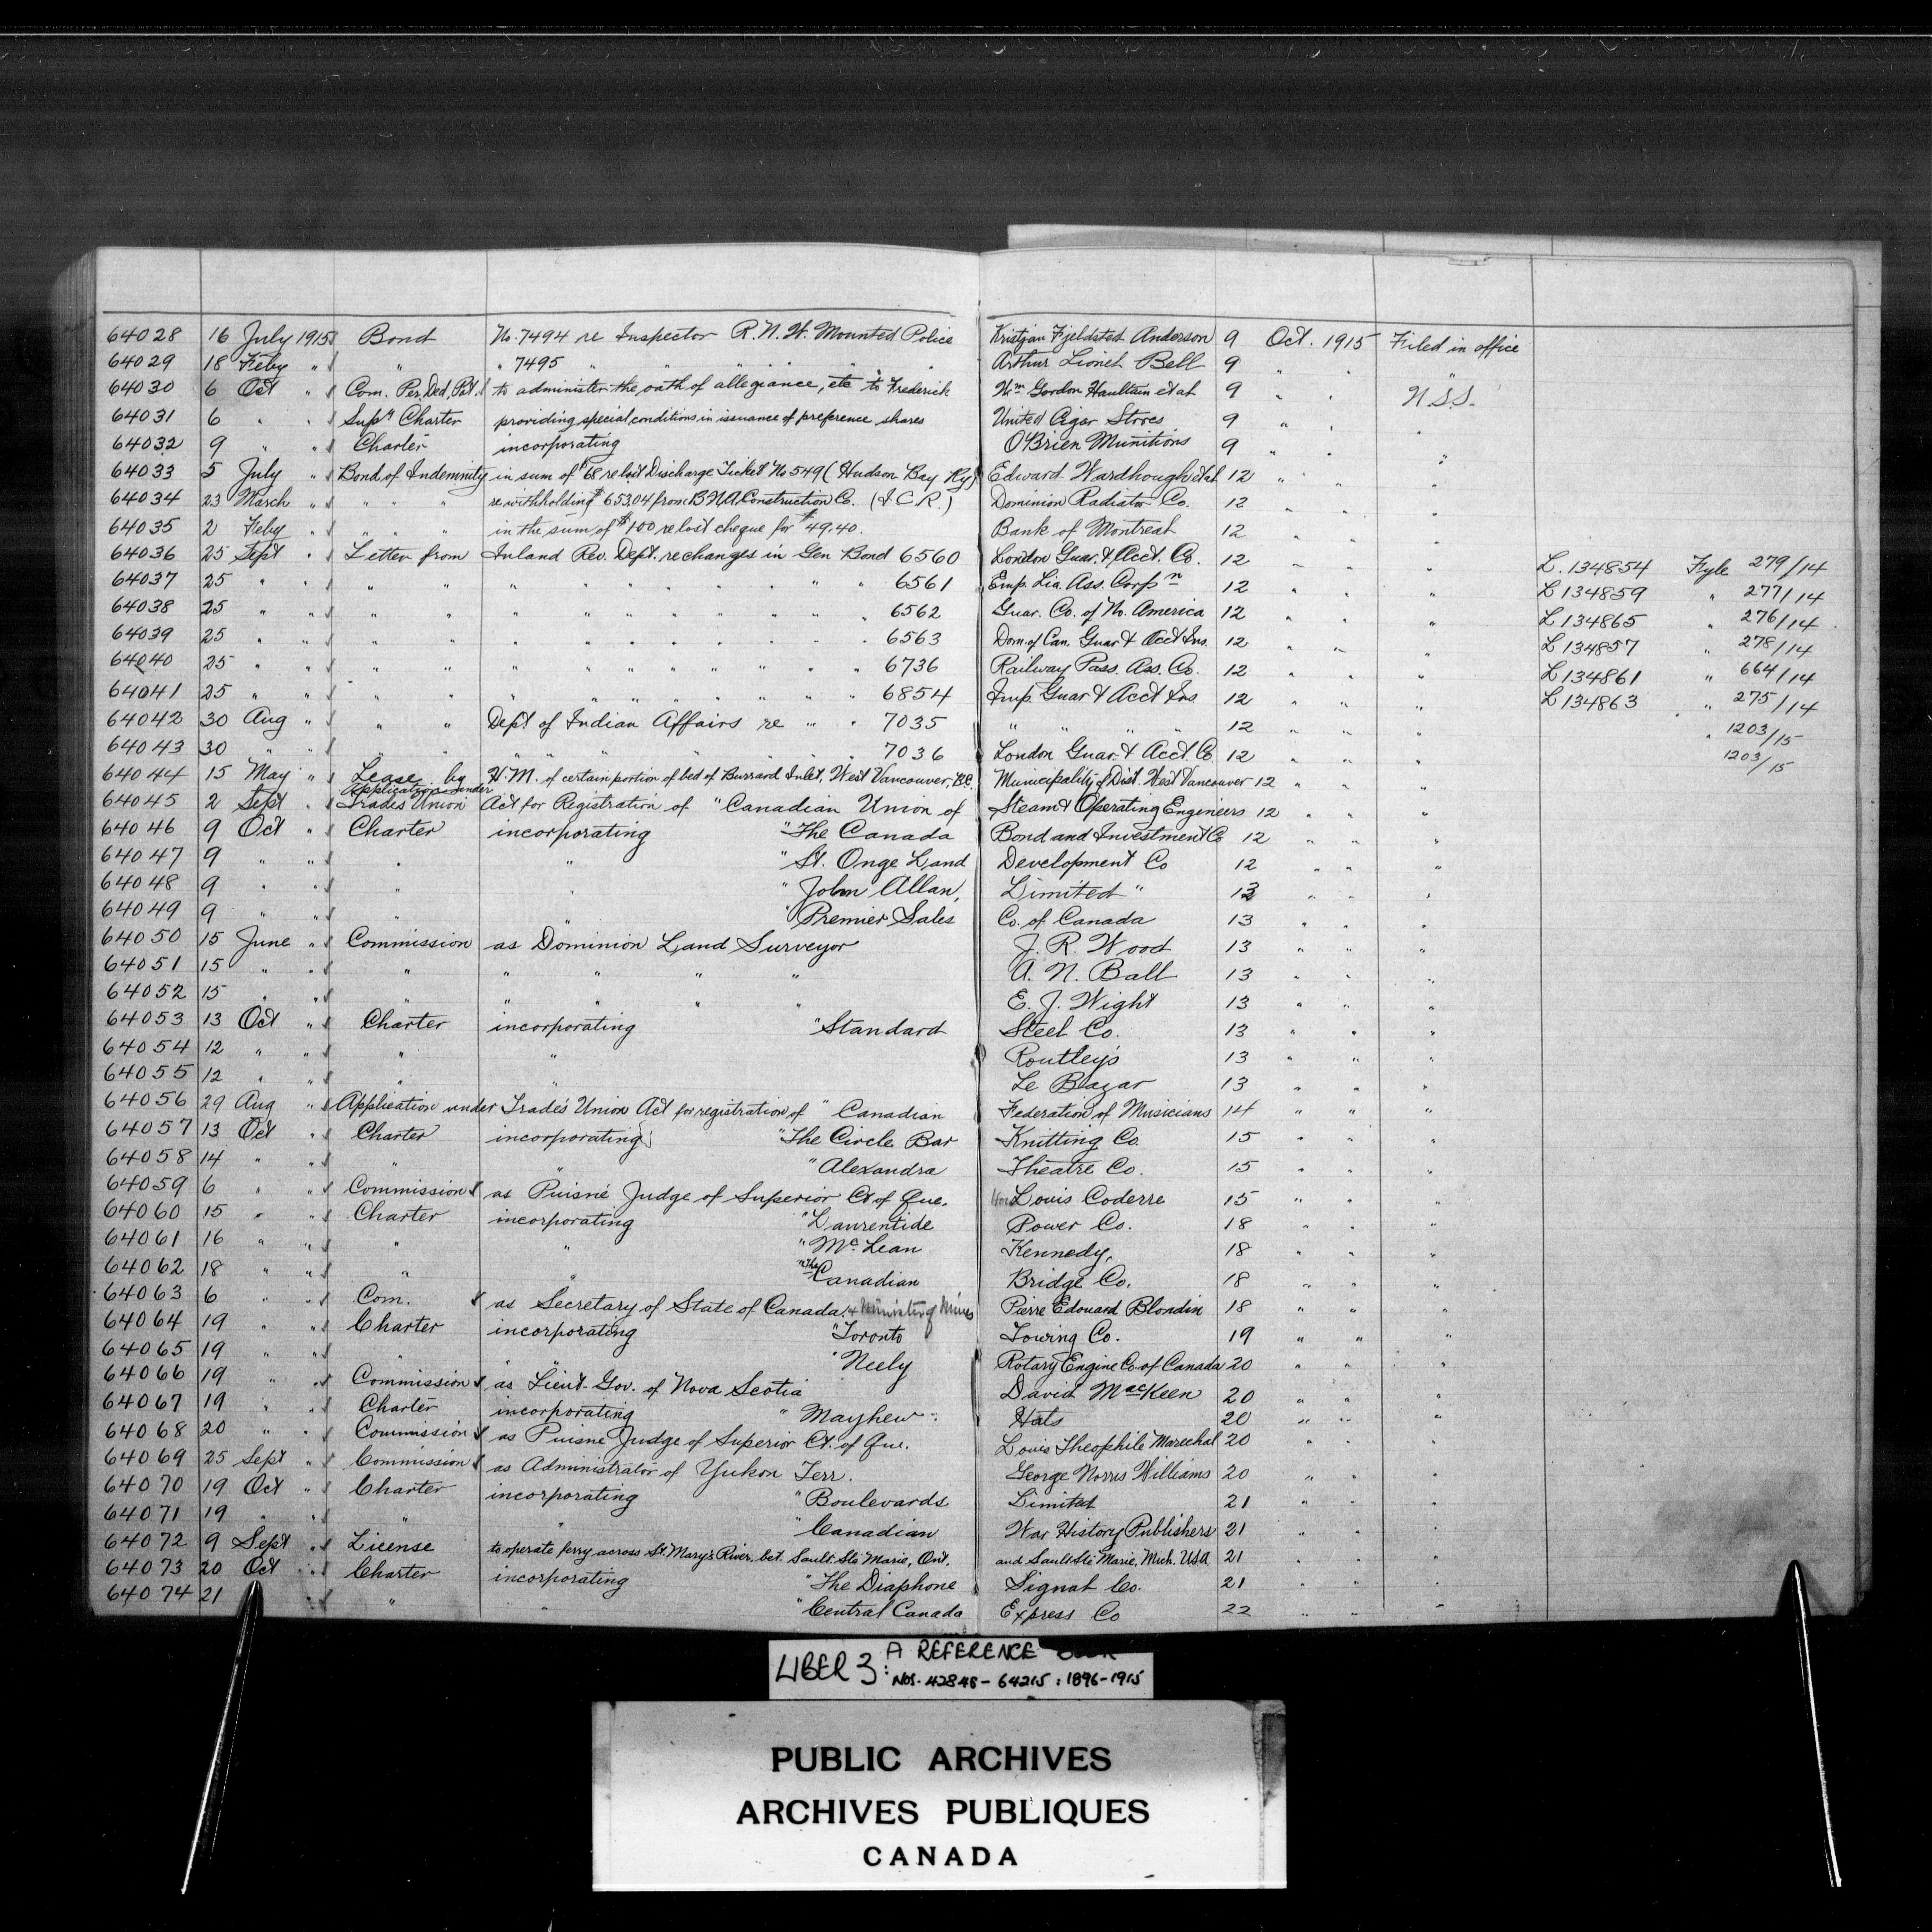 64028 16 July 1915 Bond No. 7494 re Inspector R. N. W. Mounted Police Kristjan Fjeldsted Anderson 9 Oct. 1915 Filed in office
64029 18 Feby " " " 7495 " " " " Arthur Lionel Bell 9 " " "
64030 6 Oct " Com. Per. Ded. Pot. to administer the oath of allegiance, etc to Frederick Wm Gordon Haultain et al 9 " " N.S.S.
64031 6 " " Supy Charter providing special conditions in issuance of preference shares United Cigar Stores 9 " " "
64032 9 " " Charter incorporating O'Brien Munitions 9 " " "
64033 5 July " Bond of Indemnity in sum of $68 re lost Discharge Ticket No 549 (Hudson Bay Ry) Edward Wardhough et al 12 " " "
64034 23 March " " " " re withholding $65304 from B.N.A. Construction Co. (I.C.R.) Dominion Radiator Co. 12 " " "
64035 2 Feby " " " " in the sum of $100 re lost cheque for $49.40. Bank of Montreal 12 " " "
64036 25 Sept " Letter from Inland Rev. Dept. re changes in Gen Bond 6560 London Guar. & Acct. Co. 12 " " " L. 134854 Fyle 279/14
64037 25 " " " " " " " " " " " 6561 Emp. Lia. Ass. Corpn 12 " " " L 134859 " 277/14
64038 25 " " " " " " " " " " " 6562 Guar. Co. of No. America 12 " " " L 134865 " 276/14
64039 25 " " " " " " " " " " " 6563 Dom. of Can. Guar & Acct Ins. 12 " " " L 134857 " 278/14
64040 25 " " " " " " " " " " " 6736 Railway Pass. Ass. Co. 12 " " " L 134861 " 664/14
64041 25 " " " " " " " " " " " 6854 Imp. Guar & Acct Ins. 12 " " " L 134863 " 275/14
64042 30 Aug " " " Dept of Indian Affairs re " " 7035 " " " " 12 " " " " 1203/15
64043 30 " " " " " " " " " " 7036 London Guar. & Acct. Co 12 " " " 1203/15
64044 15 May " Lease by H.M. of certain portion of bed of Burrard Inlet, West Vancouver, B.C. Municipality of Dist. West Vancouver 12 " " "
64045 2 Sept " Application under Trades Union Act for Registration of "Canadian Union of Steam & Operating Engineers 12 " " "
64046 9 Oct " Charter incorporating "The Canada Bond and Investment Co 12 " " "
64047 9 " " " " "St. Onge Land Development Co 12 " " "
64048 9 " " " " "John Allan, Limited" 13 " " "
64049 9 " " " " "Premier Sales Co. of Canada 13 " " "
64050 15 June " Commission as Dominion Land Surveyor J. R. Wood 13 " " "
64051 15 " " " " " " " A. N. Ball 13 " " "
64052 15 " " " " " " " E. J. Wight 13 " " "
64053 13 Oct " Charter incorporating "Standard Steel Co. 13 " " "
64054 12 " " " " Routley's 13 " " "
64055 12 " " " " Le Bazar 13 " " "
64056 29 Aug " Application under Trade's Union Act for registration of " Canadian Federation of Musicians 14 " " "
64057 13 Oct " Charter incorporating "The Circle Bar Knitting Co. 15 " " "
64058 14 " " " " "Alexandra Theatre Co. 15 " " "
64059 6 " " Commission as Puisné Judge of Superior Ct of Que. Hon Louis Coderre 15 " " "
64060 15 " " Charter incorporating "Laurentide Power Co. 18 " " "
64061 16 " " " " "Mc Lean Kennedy, 18 " " "
64062 18 " " " " "The Canadian Bridge Co. 18 " " "
64063 6 " " Com. as Secretary of State of Canada, & Minister of Mines Pierre Edouard Blondin 18 " " "
64064 19 " " Charter incorporating "Toronto Towing Co. 19 " " "
64065 19 " " " " "Neely Rotary Engine Co. of Canada 20 " " "
64066 19 " " Commission as Lieut-Gov. of Nova Scotia David MacKeen 20 " " "
64067 19 " " Charter incorporating " Mayhew Hats 20 " " "
64068 20 " " Commission as Puisne Judge of Superior Ct. of Que. Louis Theophile Marechal 20 " " "
64069 25 Sept " Commission as Administrator of Yukon Terr. George Norris Williams 20 " " "
64070 19 Oct " Charter incorporating "Boulevards Limited 21 " " "
64071 19 " " " " "Canadian War History Publishers 21 " " "
64072 9 Sept " License to operate ferry across St. Mary's River, bet. Sault Ste Marie, Ont. and Sault Ste Marie, Mich. USA 21 " " "
64073 20 Oct " Charter incorporating "The Diaphone Signal Co. 21 " " "
64074 21 " " " "Central Canada Express Co 22 " " "
LIBER 3: A REFERENCE
Nos. 42848 - 64215 : 1896-1915
PUBLIC ARCHIVES
ARCHIVES PUBLIQUES
CANADA